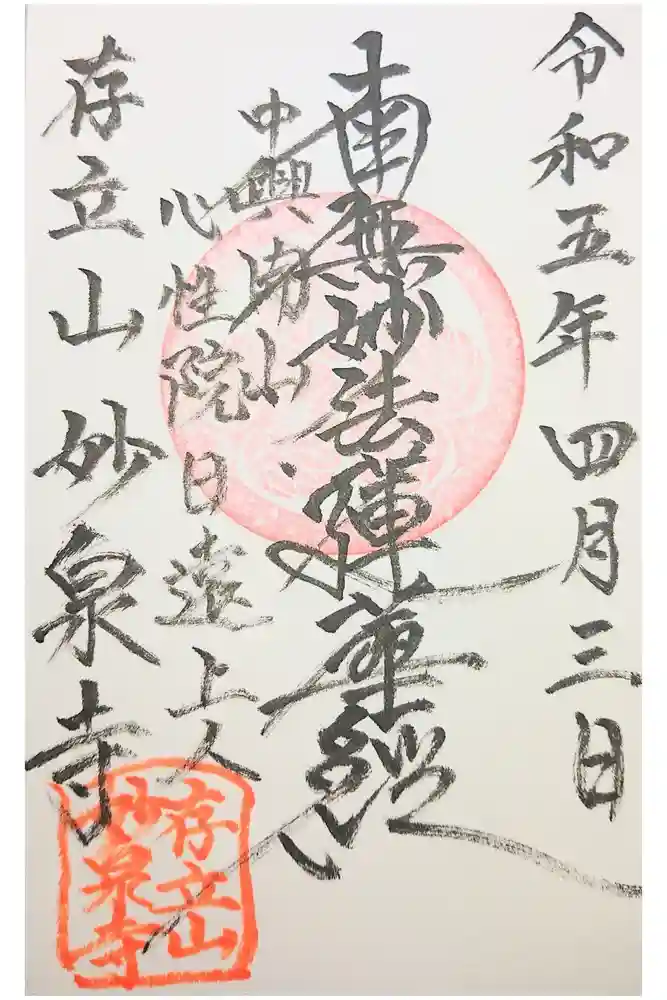 令和五年四月三日
南無妙法蓮華經
中興開山
心性院日遠上人
存立山 妙泉寺
存立山
妙泉寺